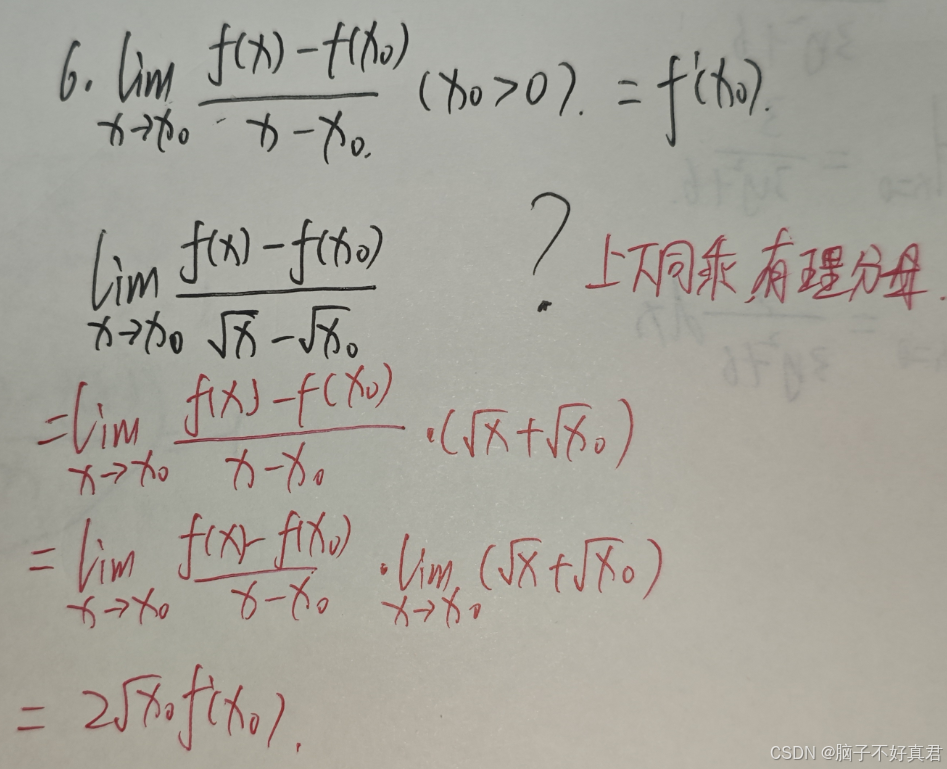 6. lim x→x₀ (f(x)-f(x₀))/(x-x₀.) (x₀>0). = f'(x₀).
lim x→x₀ (f(x)-f(x₀))/(√x-√x₀) ? 上下同乘,有理分母.
=lim x→x₀ (f(x)-f(x₀))/(x-x₀) ·(√x+√x₀)
= lim x→x₀ (f(x)-f(x₀))/(x-x₀) ·lim x→x₀ (√x+√x₀)
= 2√x₀f'(x₀).
CSDN @脑子不好真君